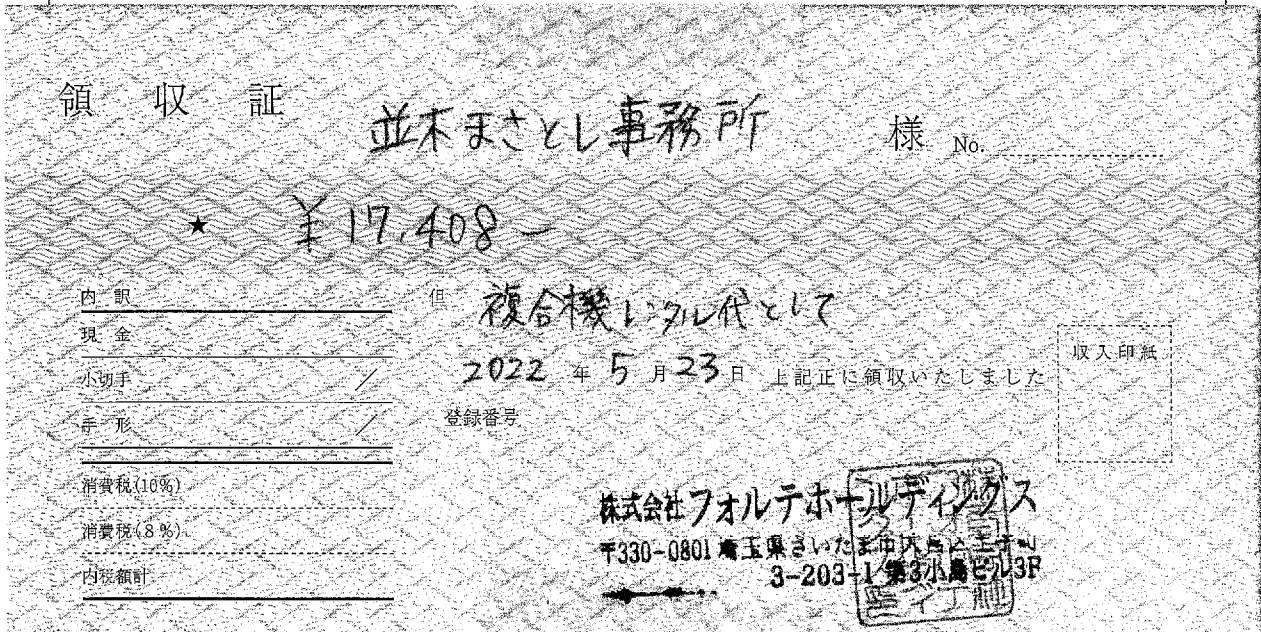 領収証 並木まさとし事務所 様 No.
★ ¥17,408-
内訳
現金
小切手 /
手形 /
消費税(10%)
消費税(8%)
内税額計
但 複合機レンタル代として
2022年5月23日 上記正に領収いたしました
登録番号
収入印紙
株式会社フォルテホールディングス
〒330-0801 埼玉県さいたま市大宮区土手町
3-203-1 第3小島ビル3F